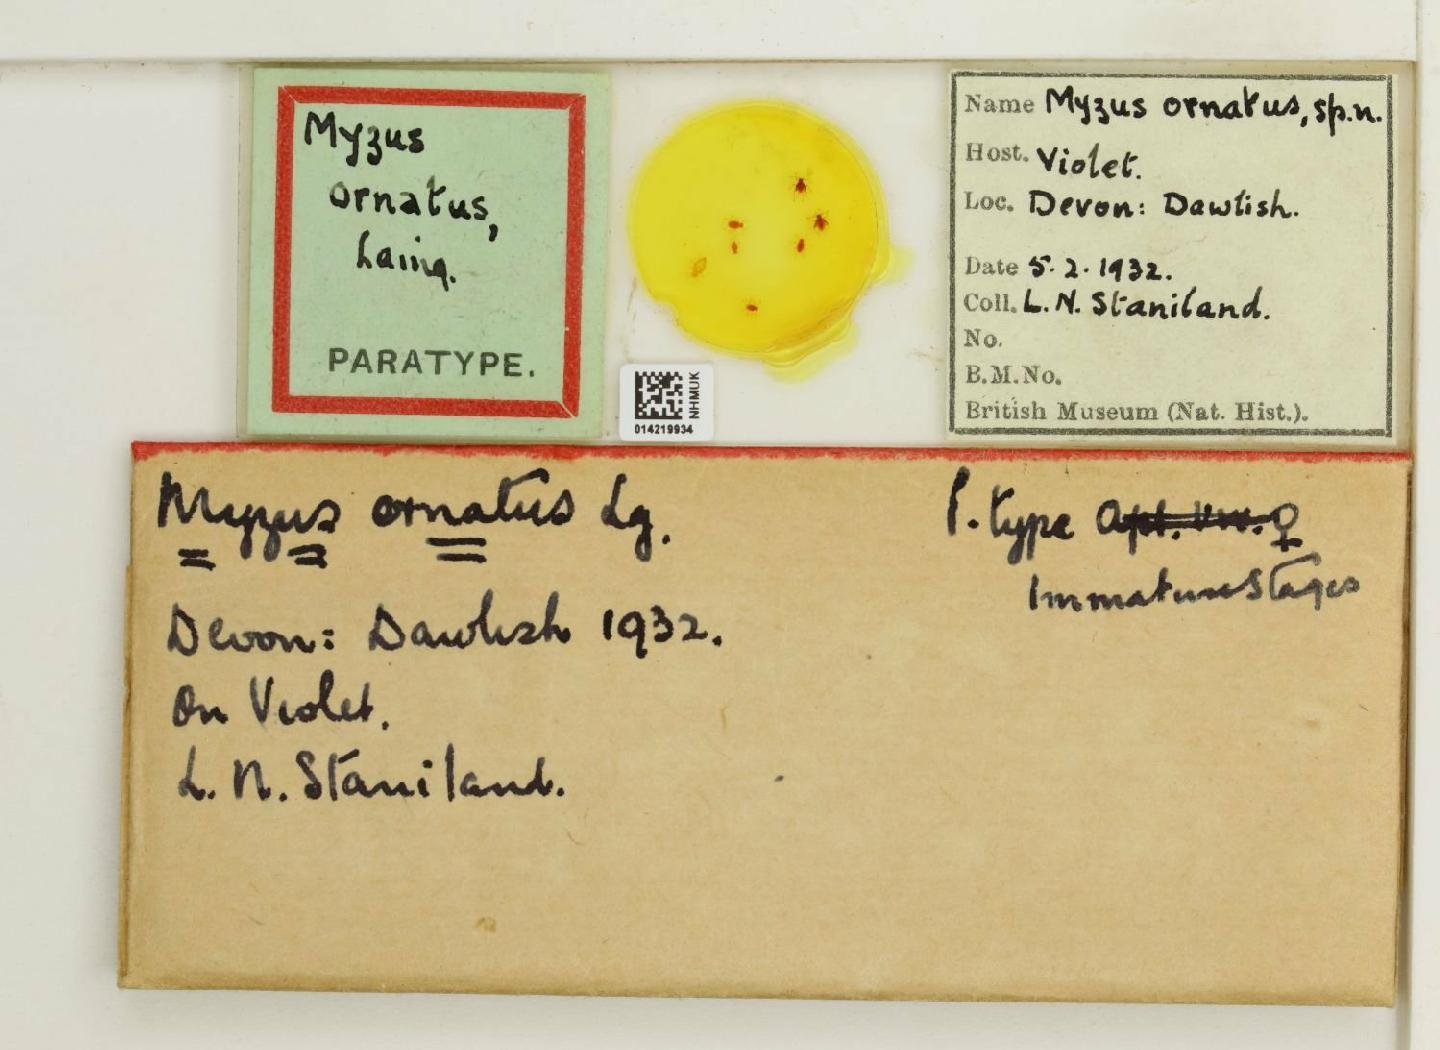 Myzus
ornatus,
Laing.
PARATYPE.
NHMUK
014219934
Name Myzus ornatus, sp.n.
Host. Violet.
Loc. Devon: Dawlish.
Date 5.2.1932.
Coll. L.N. Staniland.
No.
B.M.No.
British Museum (Nat. Hist.).
Myzus ornatus Lg.
Devon: Dawlish 1932.
On Violet.
L. N. Staniland.
P. type apt. viv. ♀
Immature Stages